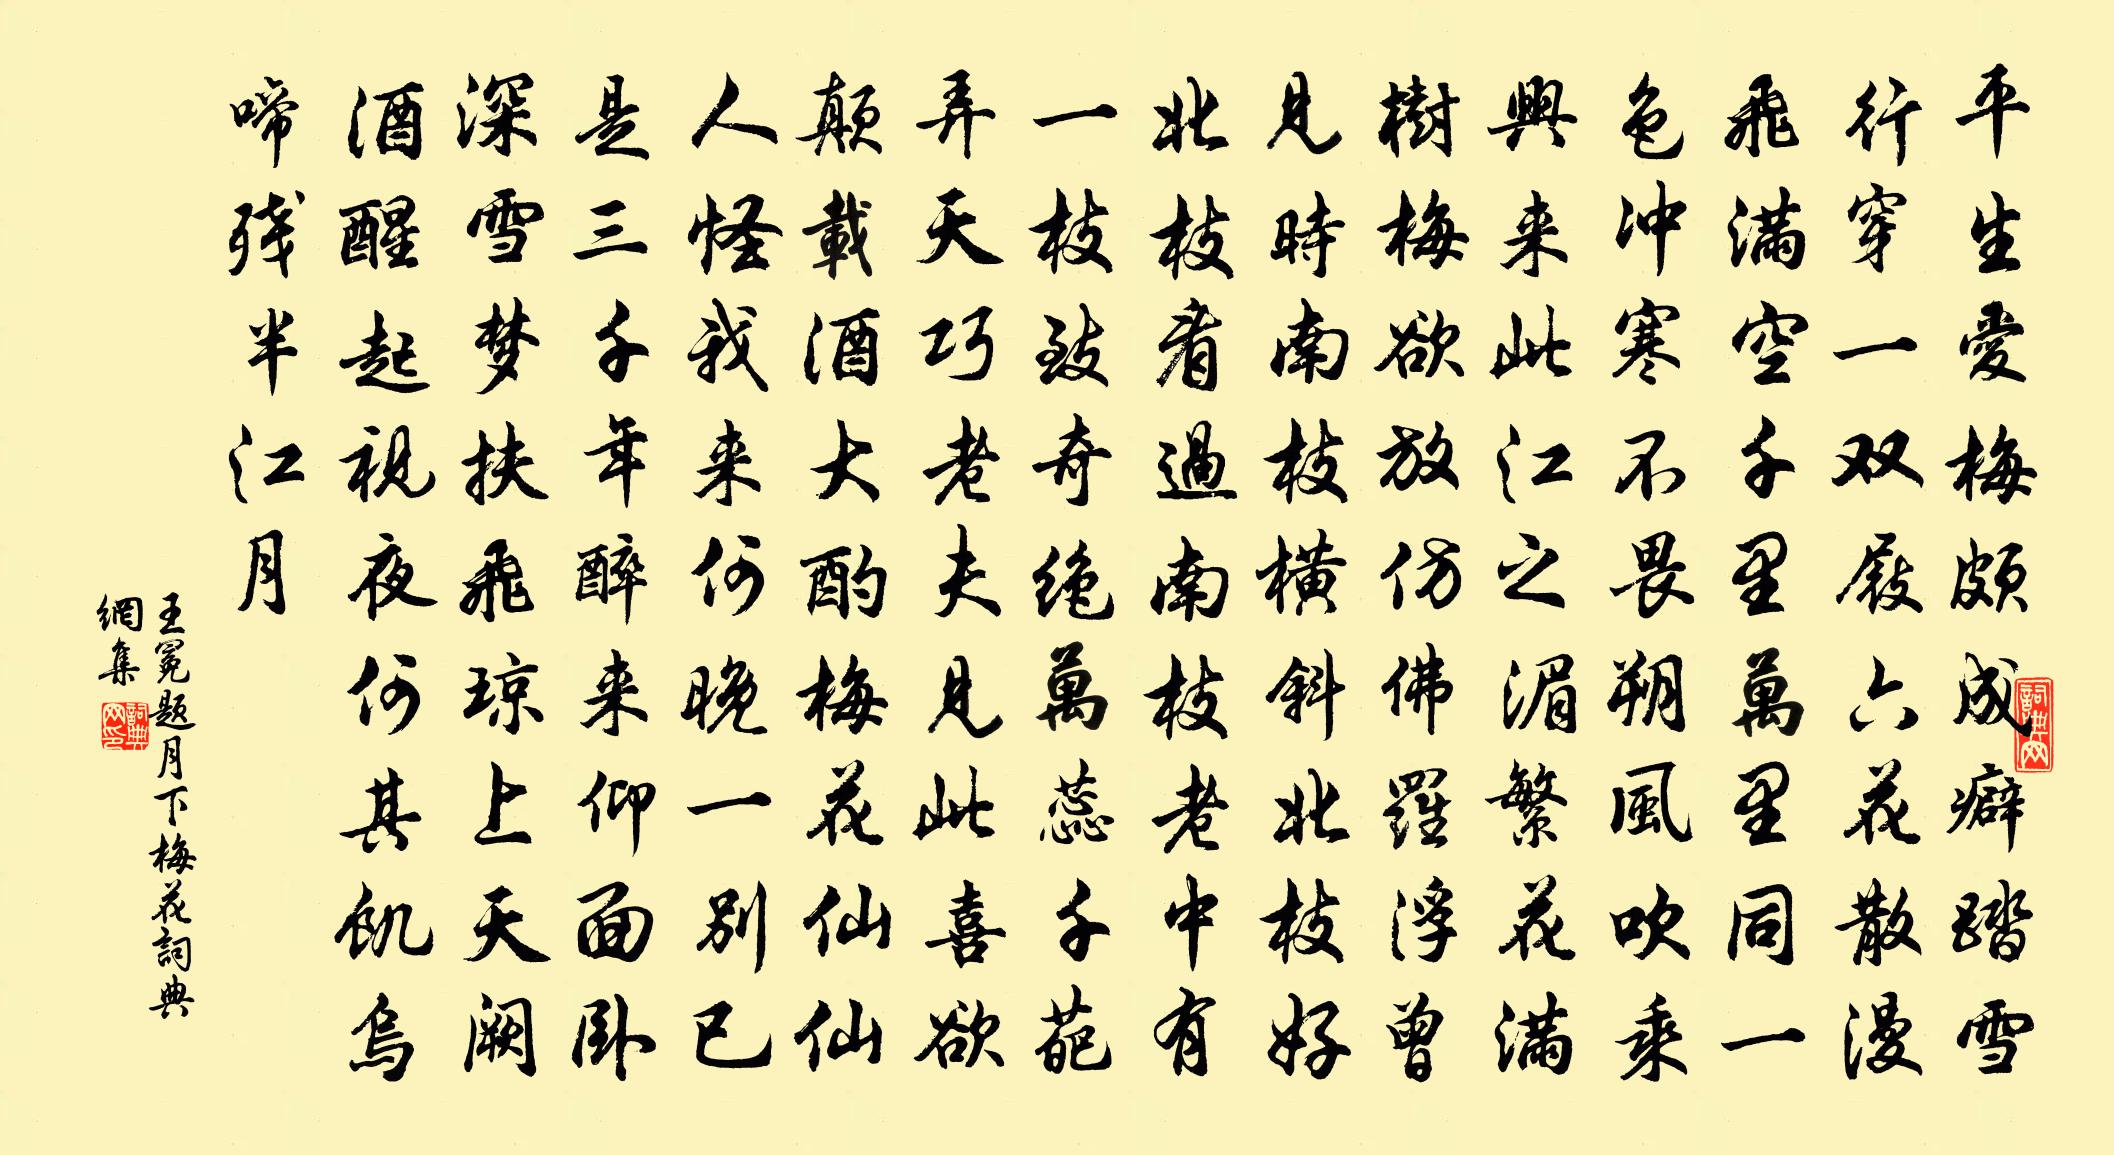 平生愛梅頗成癖踏雪
行穿一双屐六花散漫
飛滿空千里萬里同一
色冲寒不畏朔風吹乘
興来此江之湄繁花滿
樹梅欲放仿佛羅浮曾
見時南枝橫斜北枝好
北枝看過南枝老中有
一枝致奇绝萬蕊千葩
弄天巧老夫見此喜欲
顛載酒大酌梅花仙仙
人怪我来何晚一别已
是三千年醉来仰面卧
深雪梦扶飛琼上天阙
酒醒起視夜何其飢烏
啼残半江月
王冕题月下梅花詞典
網集
詞典网
詞典网印